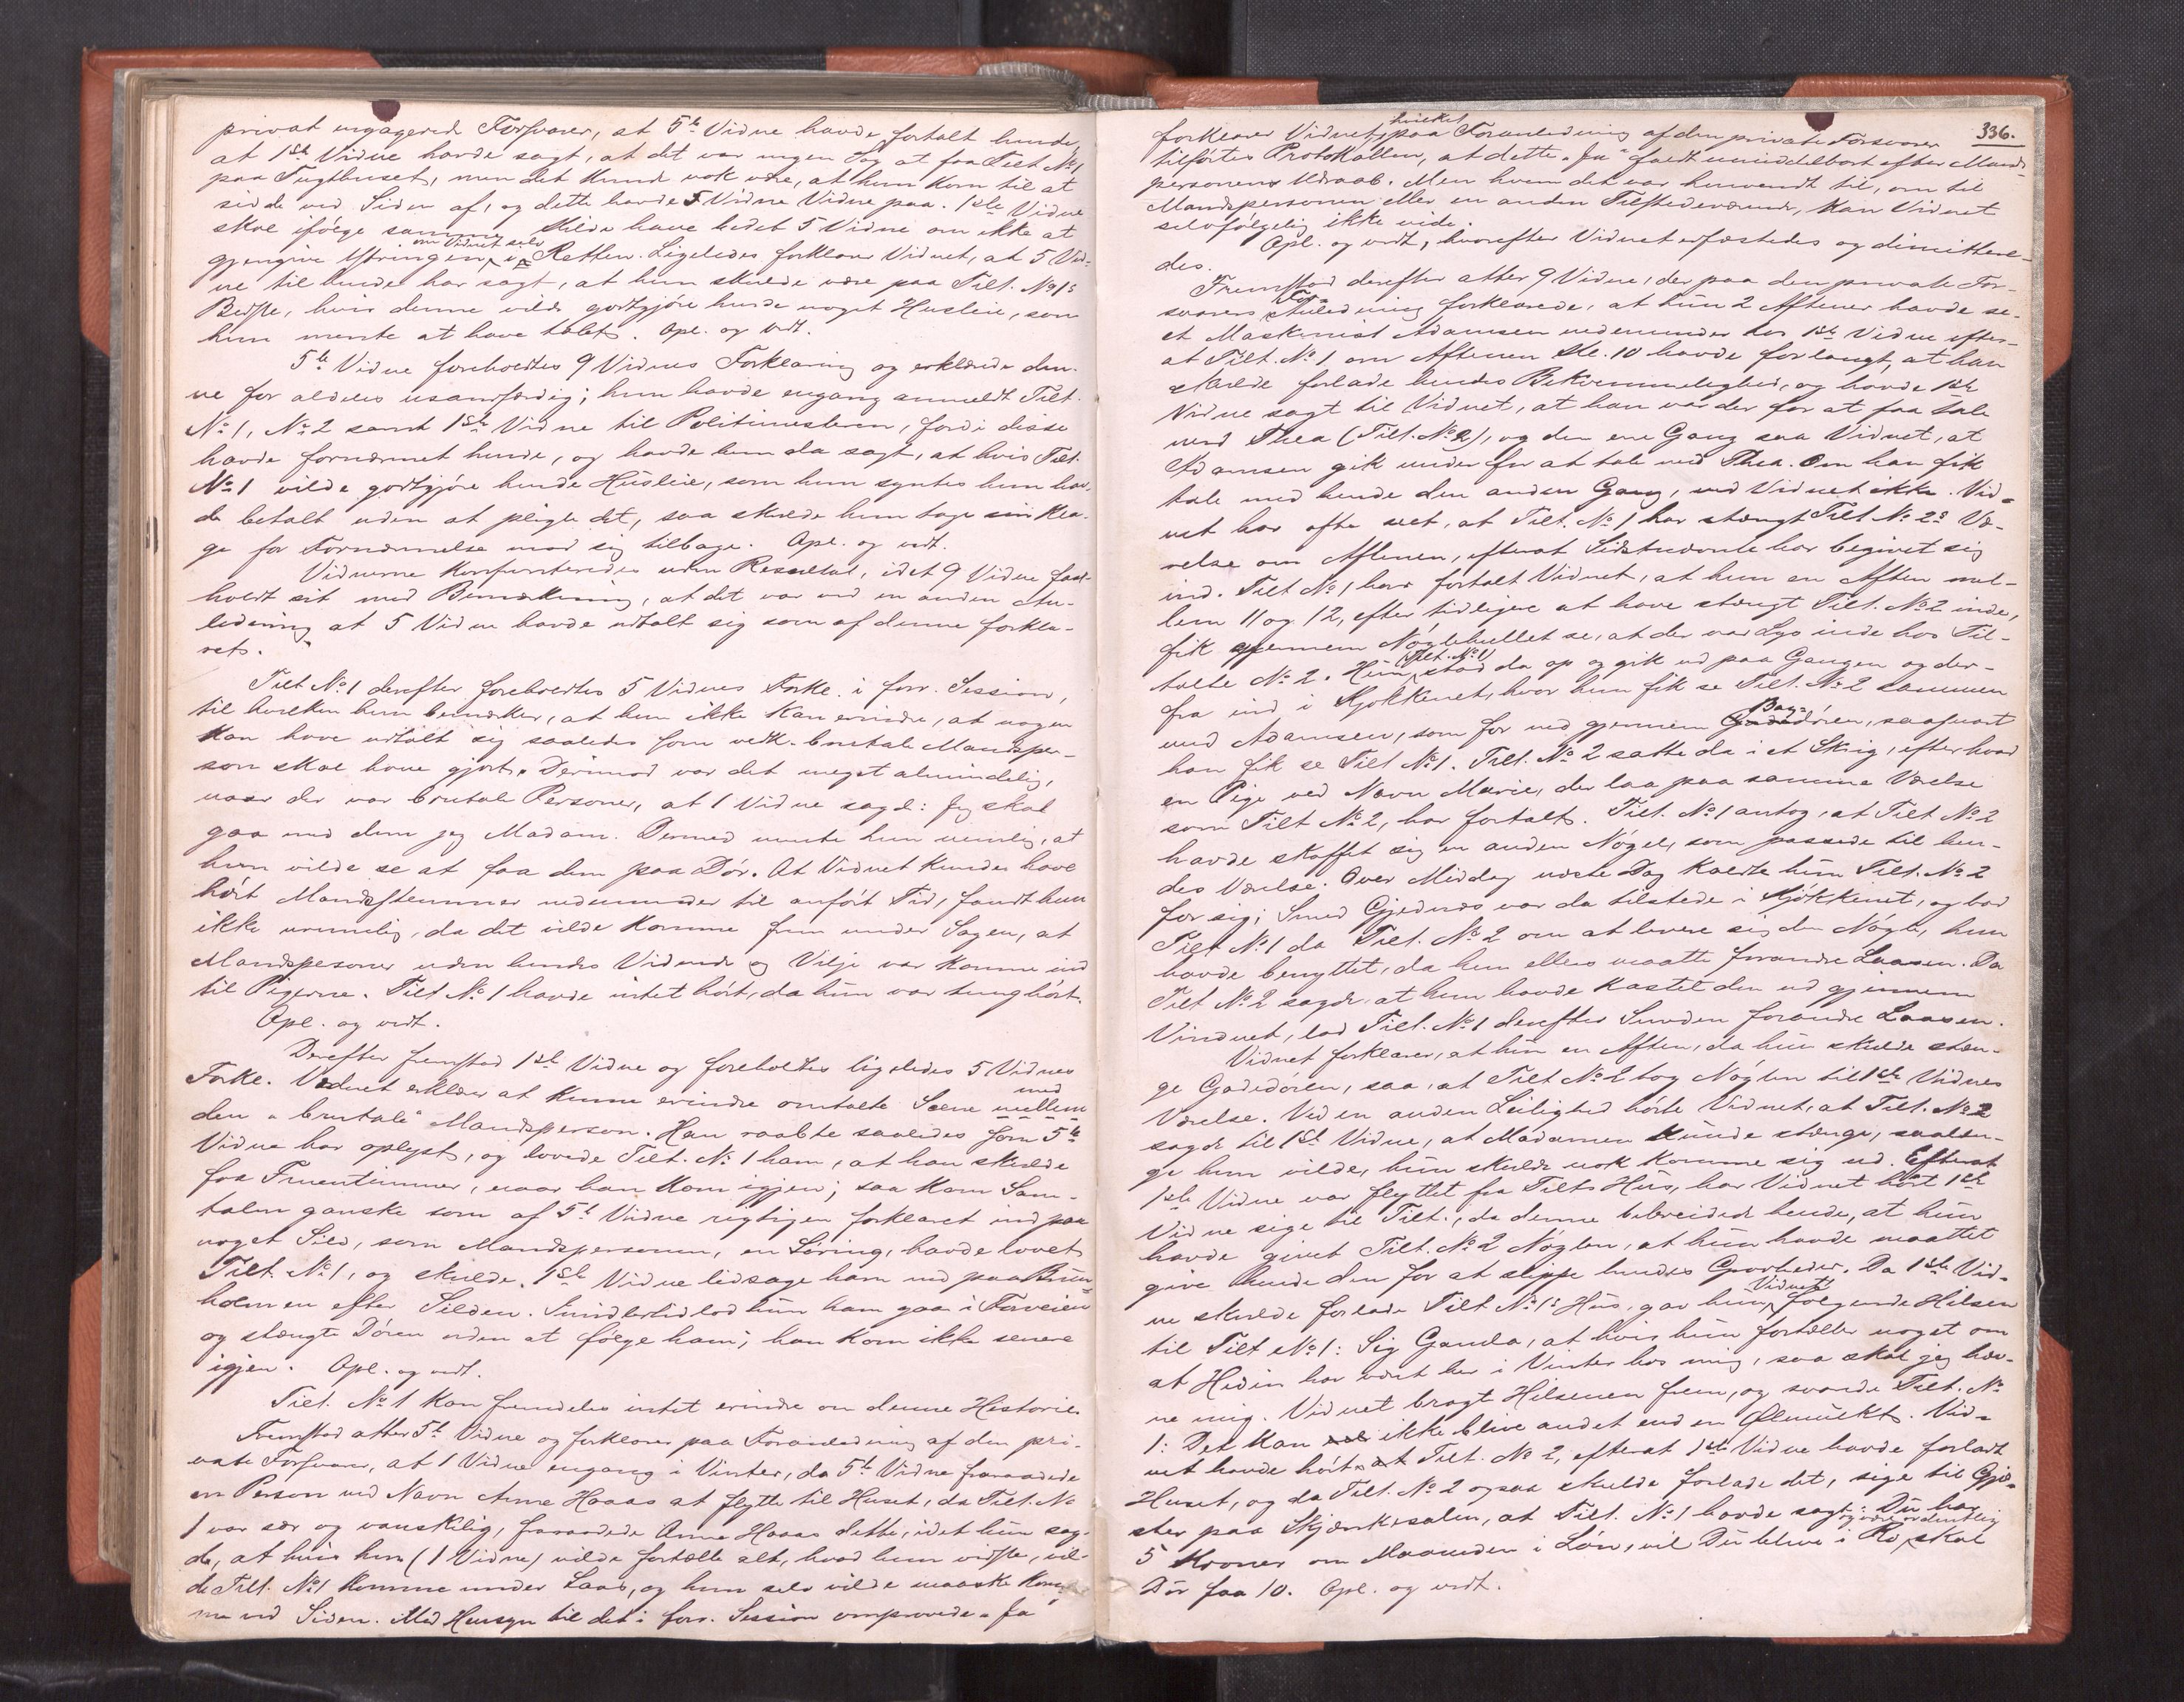 privat engagered Forsvarer, at 5te Vidne havde fortalt hende,
at 1ste Vidne havde sagt, at det var ingen Sag at faa Tilt No 1
paa Tugthuset, men det kunde nok være, at hun kom til at
sidde ved Siden af, og dette havde 5 Vidne Vidne paa. 1ste Vidne
skal ifölge samme Kilde have bedet 5 Vidne om ikke at
gjengive Ytringen, om Vidnet selv i Retten. Ligeledes forklarer Vidnet, at 5 Vid-
ne til hende har sagt, at hun skulde være paa Tilt. No 1s
Bedste, hvis denne vilde godtgjöre hende noget Husleie, som
hun mente at have tabt. Opl. og vedt.
5te Vidne foreholdtes 9 Vidnes Forklaring og erklærede den-
ne for aldeles usandfærdig; hun havde engang anmeldt Tilt.
No 1, No 2 samt 1ste Vidne til Politimesteren, fordi disse
havde fornærmet hende, og havde hun da sagt, at hvis Tilt.
No 1 vilde godtgjöre hende Husleie, som hun syntes hun hav-
de betalt uden at pligte det, saa skulde hun tage sin Kla-
ge for Fornærmelse mod sig tilbage. Opl. og vedt.
Vidnerne konfronteredes uden Resultat, idet 9 Vidne fast-
holdt sit med Bemærkning, at det var ved en anden An-
ledning at 5 Vidne havde udtalt sig som af denne forkla-
ret.
Tilt No 1 derefter foreholdtes 5 Vidnes Forkl. i forr. Session,
til hvilken hun bemærker, at hun ikke kan erindre, at nogen
kan have udtalt sig saaledes som vedk. brutale Mandsper-
son skal have gjort. Derimod var det meget almindelig,
naar der var brutale Personer, at 1 Vidne sagde: Jeg skal
gaa med dem jeg Madam. Dermed mente hun nemlig, at
hun vilde se at faa dem paa Dör. At Vidnet kunde have
hört Mandsstemmer nedenunder til anfört Tid, fandt hun
ikke urimelig, da det vilde komme frem under Sagen, at
Mandspersoner uden hendes Vidende og Vilje var komne ind
til Pigerne. Tilt No 1 havde intet hört, da hun var tunghört.
Opl. og vedt.
Derefter fremstod 1ste Vidne og foreholdtes ligeledes 5 Vidnes
Forkl. Vidnet erklærer at kunne erindre omtalte Scene mellem med
den "brutale" Mandsperson. Han raabte saaledes som 5te
Vidne har oplyst, og lovede Tilt. No 1 ham, at han skulde
faa Fruentimmer, naar han kom igjen; saa kom Sam-
talen ganske som af 5te Vidne rigtigen forklaret ind paa
noget Sild, som Mandspersonen, en Söring, havde lovet
Tilt. No 1, og skulde 1ste Vidne ledsage ham ned paa Bun-
holmen efter Silden. Imidlertid lod hun ham gaa i Forveien
og stængte Dören uden at fölge ham; han kom ikke senere
igjen. Opl. og vedt.
Tilt. No 1 kan fremdeles intet erindre om denne Historie.
Fremstod atter 5te Vidne og forklarer paa Foranledning af den pri-
vate Forsvarer, at 1 Vidne engang i Vinter, da 5te Vidne fraraadede
en Person ved Navn Anna Haaas at flytte til Huset, da Tilt. No
1 var sær og vanskelig, fraraadede Anna Haaas dette, idet hun sag-
de, at hvis hun (1 Vidne) vilde fortælle alt, hvad hun vidste, vil-
de Tilt. No 1 komme under Laas, og hun selv vilde maaske kom-
me ved Siden. Med Hensyn til det i forr. Session omprovede "Ja"
336.
forklarer Vidnet, hvilket paa Foranledning af den private Forsvarer
tilförtes Protokollen, at dette "Ja" faldt umiddelbart efter Mands-
personens Udraab. Men hvem det var henvendt til, om til
Mandspersonen eller en anden Tilstedeværende, kan Vidnet
selvfölgelig ikke vide.
Opl. og vedt, hvorefter Vidnet edfæstedes og dimittere-
des.
Fremstod derefter atter 9 Vidne, der paa den private For-
svarers For- Anledning forklarede, at hun 2 Aftener havde se-
et Maskinist Adamsen nedenunder hos 1ste Vidne efter-
at Tilt. No 1 om Aftenen Kl. 10 havde forlangt, at han
skulde forlade hendes Bekvemmelighed, og havde 1ste
Vidne sagt til Vidnet, at han var der for at faa tale
med Thea (Tilt. No 2), og den ene Gang saa Vidnet, at
Adamsen gik under for at tale med Thea. Om han fik
tale med hende den anden Gang, ved Vidnet ikke. Vid-
net har ofte seet, at Tilt. No 1 har stængt Tilt No 2s Væ-
relse om Aftenen, efterat Sidstnævnte har begivet sig
ind. Tilt No 1 har fortalt Vidnet, at hun en Aften mel-
lem 11 og 12, efter tidligere at have stængt Tilt. No 2 inde,
fik gjennem Nöglehullet se, at der var Lys inde hos Til-
talte No 2. Hun (Tilt. No 1) stod da op og gik ud paa Gangen og der-
fra ind i Kjökkenet, hvor hun fik se Tilt. No 2 sammen
med Adamsen, som for ned gjennem Gade Bag-dören, saasnart
han fik se Tilt No 1. Tilt. No 2 satte da i et Skrig, efter hvad
en Pige ved Navn Marie, der laa paa samme Værelse
som Tilt No 2, har fortalt. Tilt. No 1 antog, at Tilt No 2
havde skaffet sig en anden Nögel, som passede til hen-
des Værelse. Over Middag næste Dag kaldte hun Tilt. No 2
for sig; Smed Gjednæs var da tilstede i Kjökkenet, og bad
Tilt No 1 da Tilt. No 2 om at levere sig den Nögle, hun
havde benyttet, da hun ellers maatte forandre Laasen. Da
Tilt No 2 sagde at hun havde kastet den ud gjennem
Vinduet, lod Tilt. No 1 derefter Smeden forandre Laasen.
Vidnet forklarer, at hun en Aften, da hun skulde stæn-
ge Gadedören, saa, at Tilt No 2 tog Nöglen til 1ste Vidnes
Værelse. Ved en anden Leilighed hörte Vidnet, at Tilt. No 2
sagde til 1ste Vidne, at Madamen kunde stænge, saalæn-
ge hun vilde, hun skulde nok komme sig ud. Efterat
1ste Vidne var flyttet fra Tilts Hus, har Vidnet hört 1ste
Vidne sige til Tilt., da denne bebreidede hende, at hun
havde givet Tilt. No 2 Nöglen, at hun havde maattet
give hende den for at slippe hendes Grovheder. Da 1ste Vid-
ne skulde forlade Tilt No 1s Hus, gav hun Vidnet fölgende Hilsen
til Tilt No 1: Sig Gamla, at hvis hun fortæller noget om
at Hedin har været her i Vinter hos mig, saa skal jeg hæv-
ne mig. Vidnet bragte Hilsenen frem, og svarede Tilt. No
1: Det kan ikke blive andet end en Ölmulkt. Vid-
net havde hört at Tilt. No 2, efterat 1ste Vidne havde forladt
Huset, og da Tilt. No 2 ogsaa skulde forlade det, sige til Gjæ-
ster paa Skjænkesalen, at Tilt. No 1 havde sagt: Du har
5 Kroner om Maaneden i Lön, vil Du blive i Ro, og være ordentlig skal
Du faa 10. Opl. og vedt.